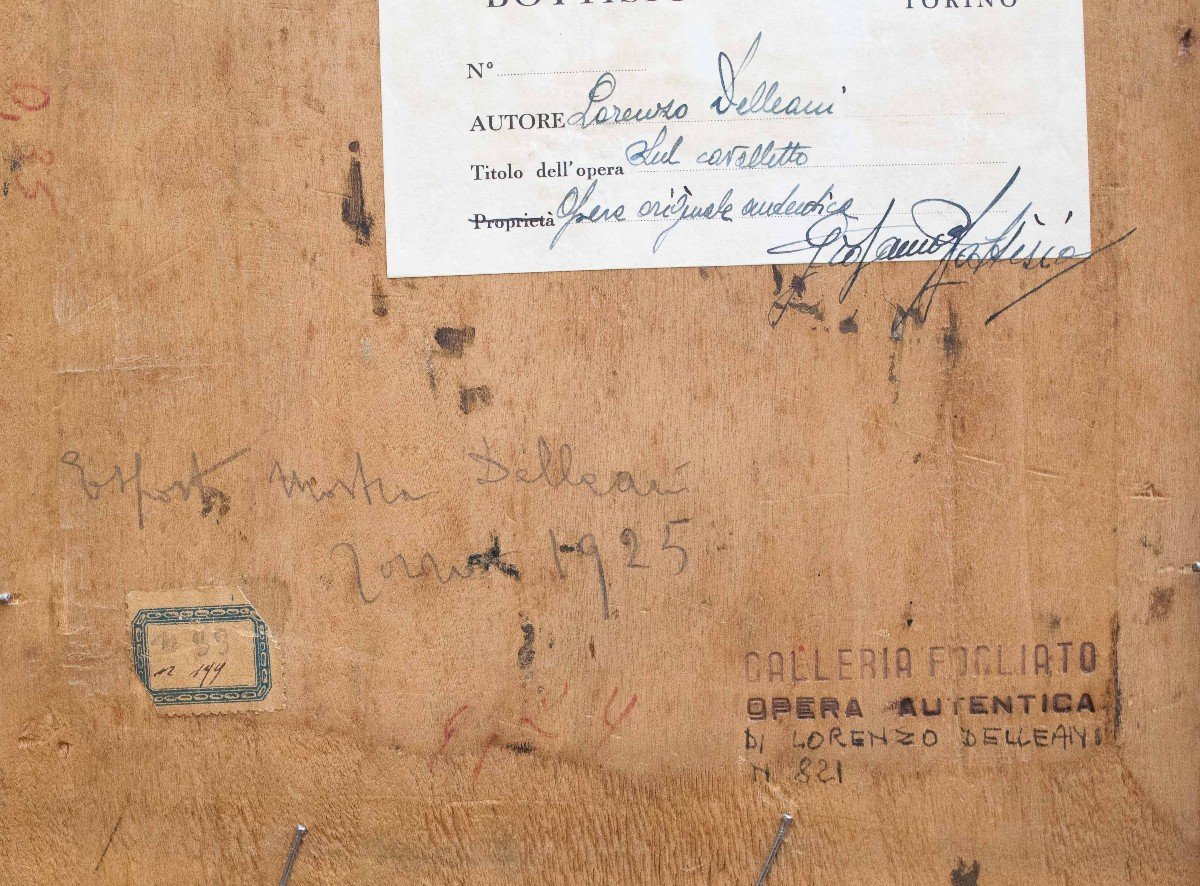 TORINO
Nº
AUTORE Lorenzo Delleani
Titolo dell'opera Sul cavalletto
Proprietà Opera originale autentica
Mostra Delleani
1925
n 199
GALLERIA FOGLIATO
OPERA AUTENTICA
DI LORENZO DELLEANI
N 821